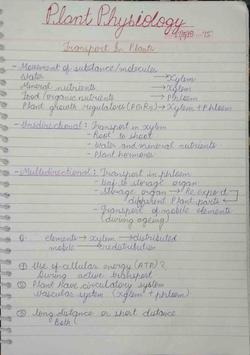 Plant Physiology
Transport In Plants
- Movement of substance/molecules
Water → Xylem
Mineral nutrients → Xylem
Food/organic nutrients → Phloem
Plant growth regulators (PGRs) → Xylem + Phloem
- Unidirectional: Transport in xylem
- Root to shoot
- Water and mineral nutrients
- Plant hormones
- Multidirectional: Transport in phloem
- Leaf to storage organ
- Storage organ → Re export
different Plant parts
- Transport of mobile elements
(during ageing)
elements → xylem → distributed
mobile → redistribution
① Use of cellular energy (ATP)?
During active transport
② Plant have circulatory system
Vascular system (xylem + phloem)
③ Long distance or short distance
Both